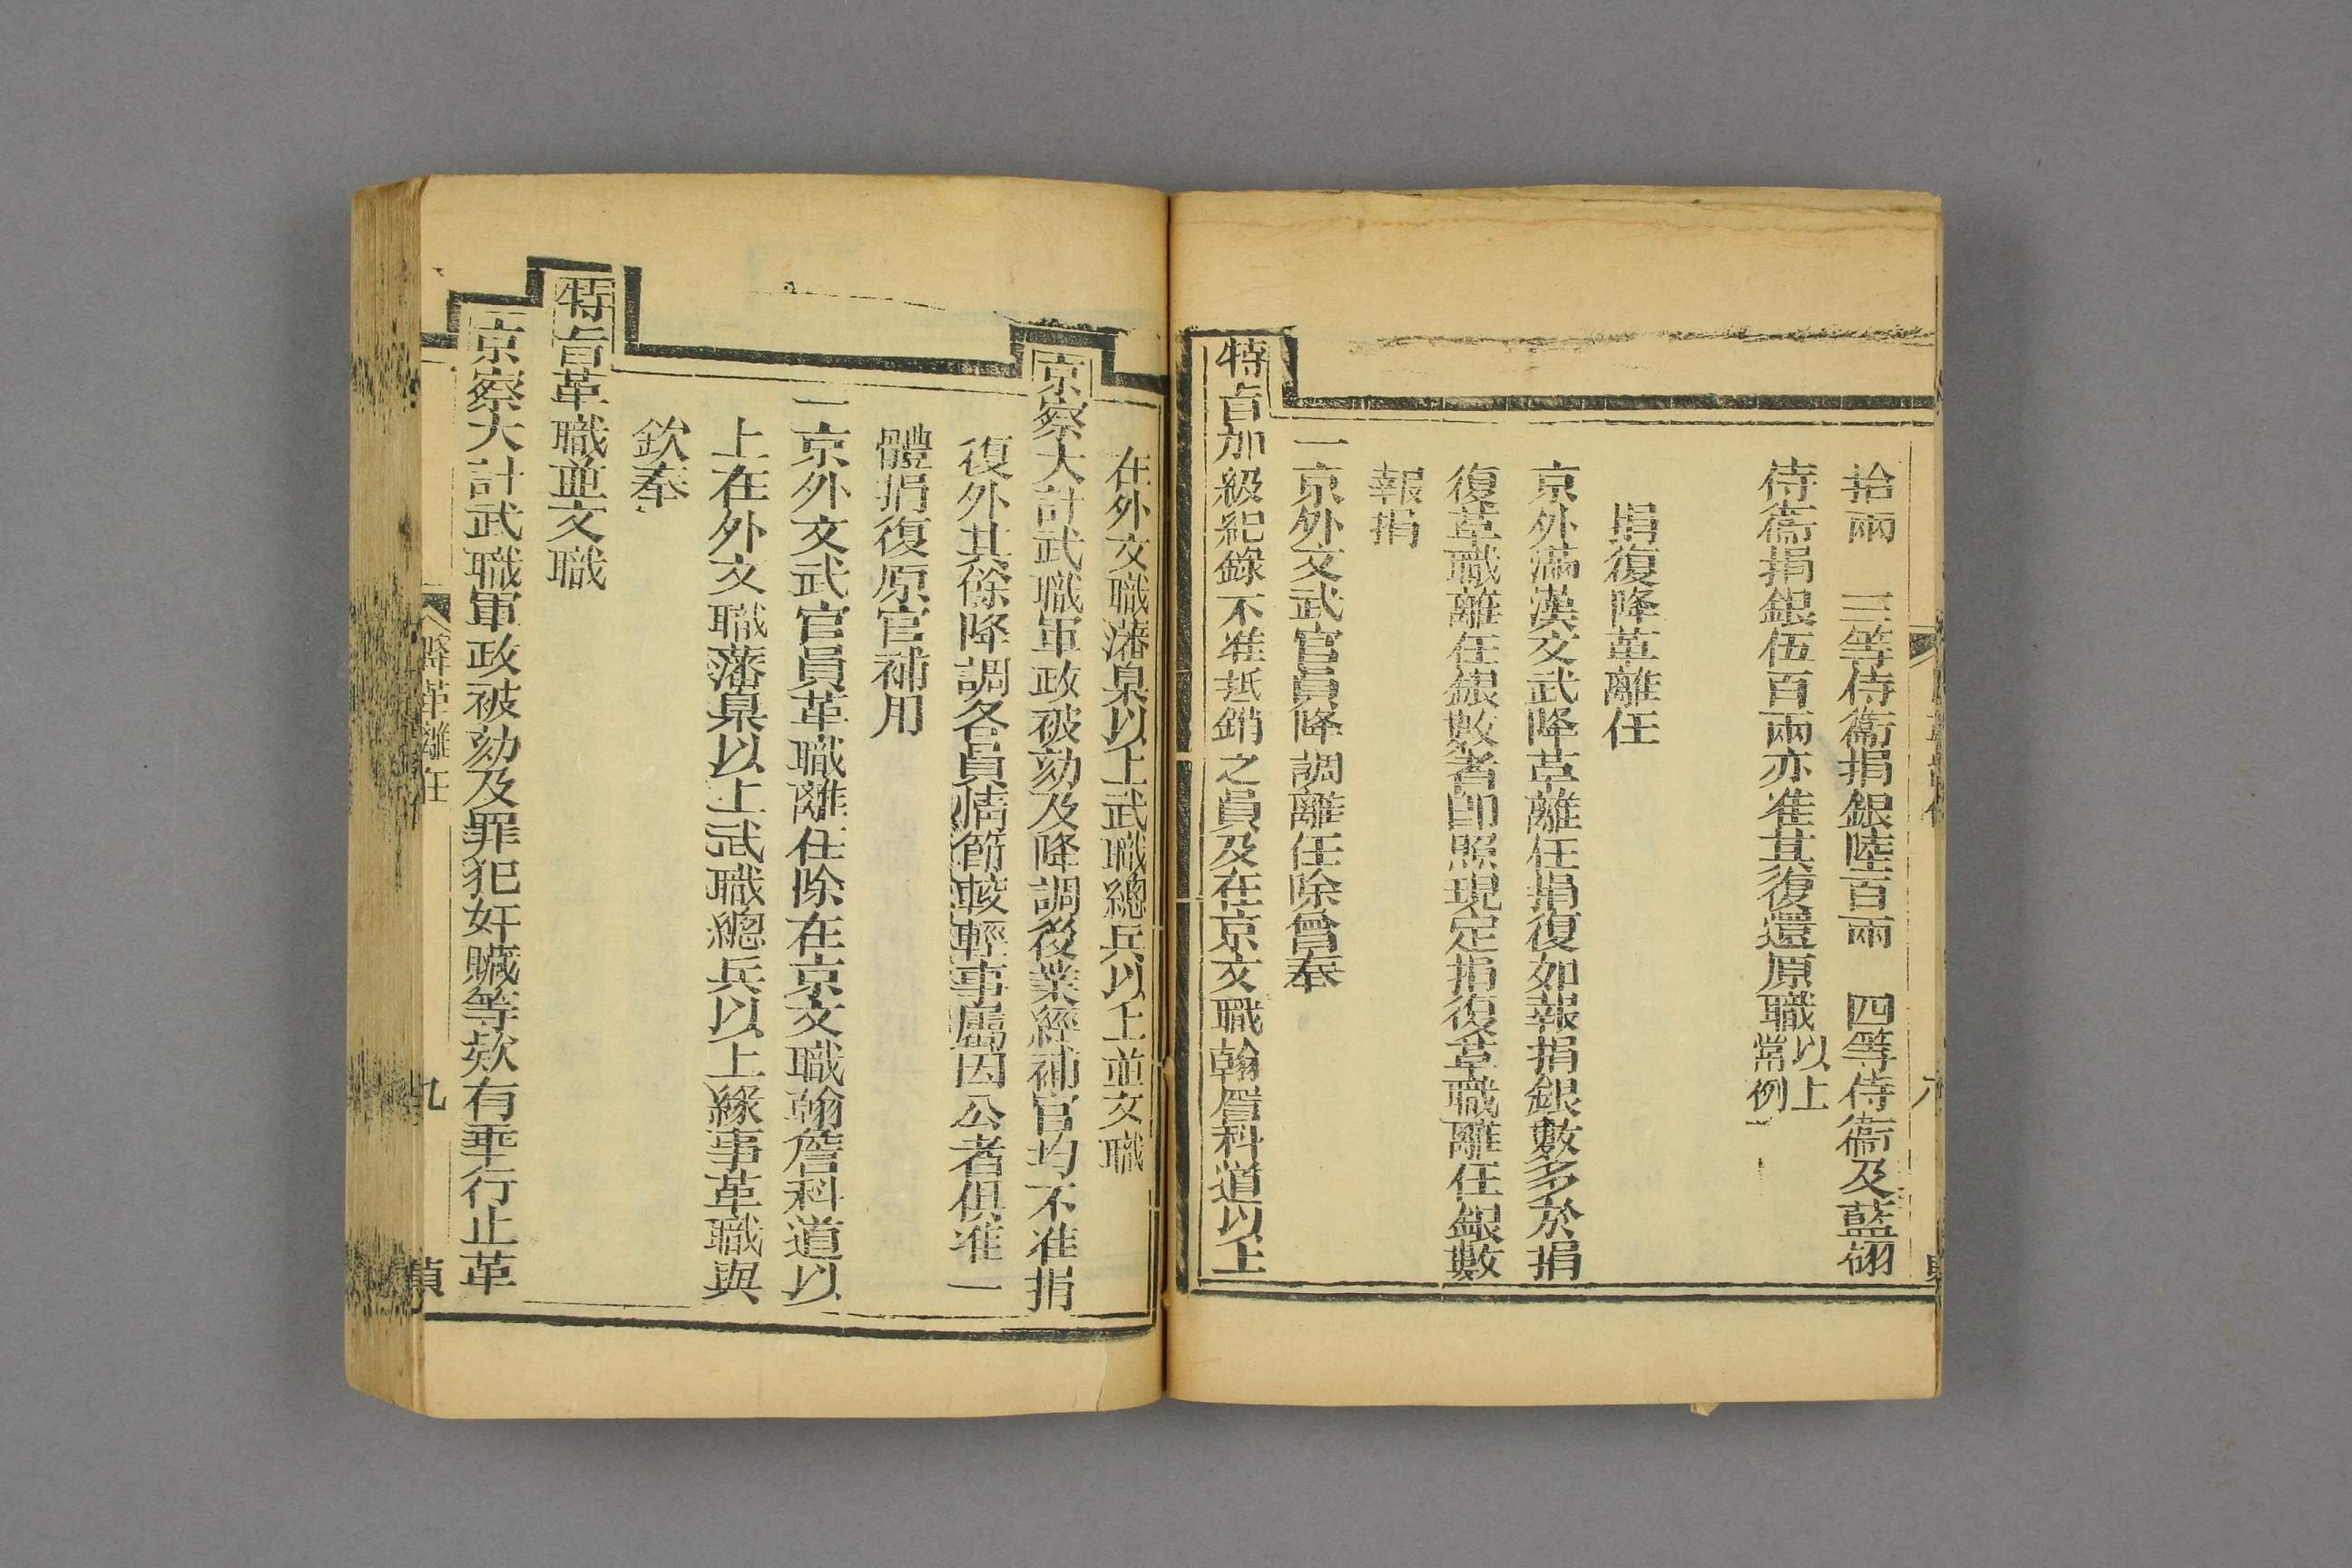 拾兩　三等侍衞捐銀陸百兩　四等侍衞及藍翎
侍衞捐銀伍百兩亦准其復還原職以上常例
捐復降革離任
京外滿漢文武降革離任捐復如報捐銀數多於捐
復革職離任銀數者卽照現定捐復革職離任銀數
報捐
一京外文武官員降調離任除曾奉
特旨加級紀錄不准抵銷之員及在京文職翰詹科道以上
在外文職藩臬以上武職總兵以上並文職
京察大計武職軍政被劾及降調後業經補官均不准捐
復外其餘降調各員情節較輕事屬因公者俱准一
體捐復原官補用
一京外文武官員革職離任除在京文職翰詹科道以
上在外文職藩臬以上武職總兵以上緣事革職與
欽奉
特旨革職並文職
京察大計武職軍政被劾及罪犯奸贓等欵有乖行止革
降革離任
九
貞